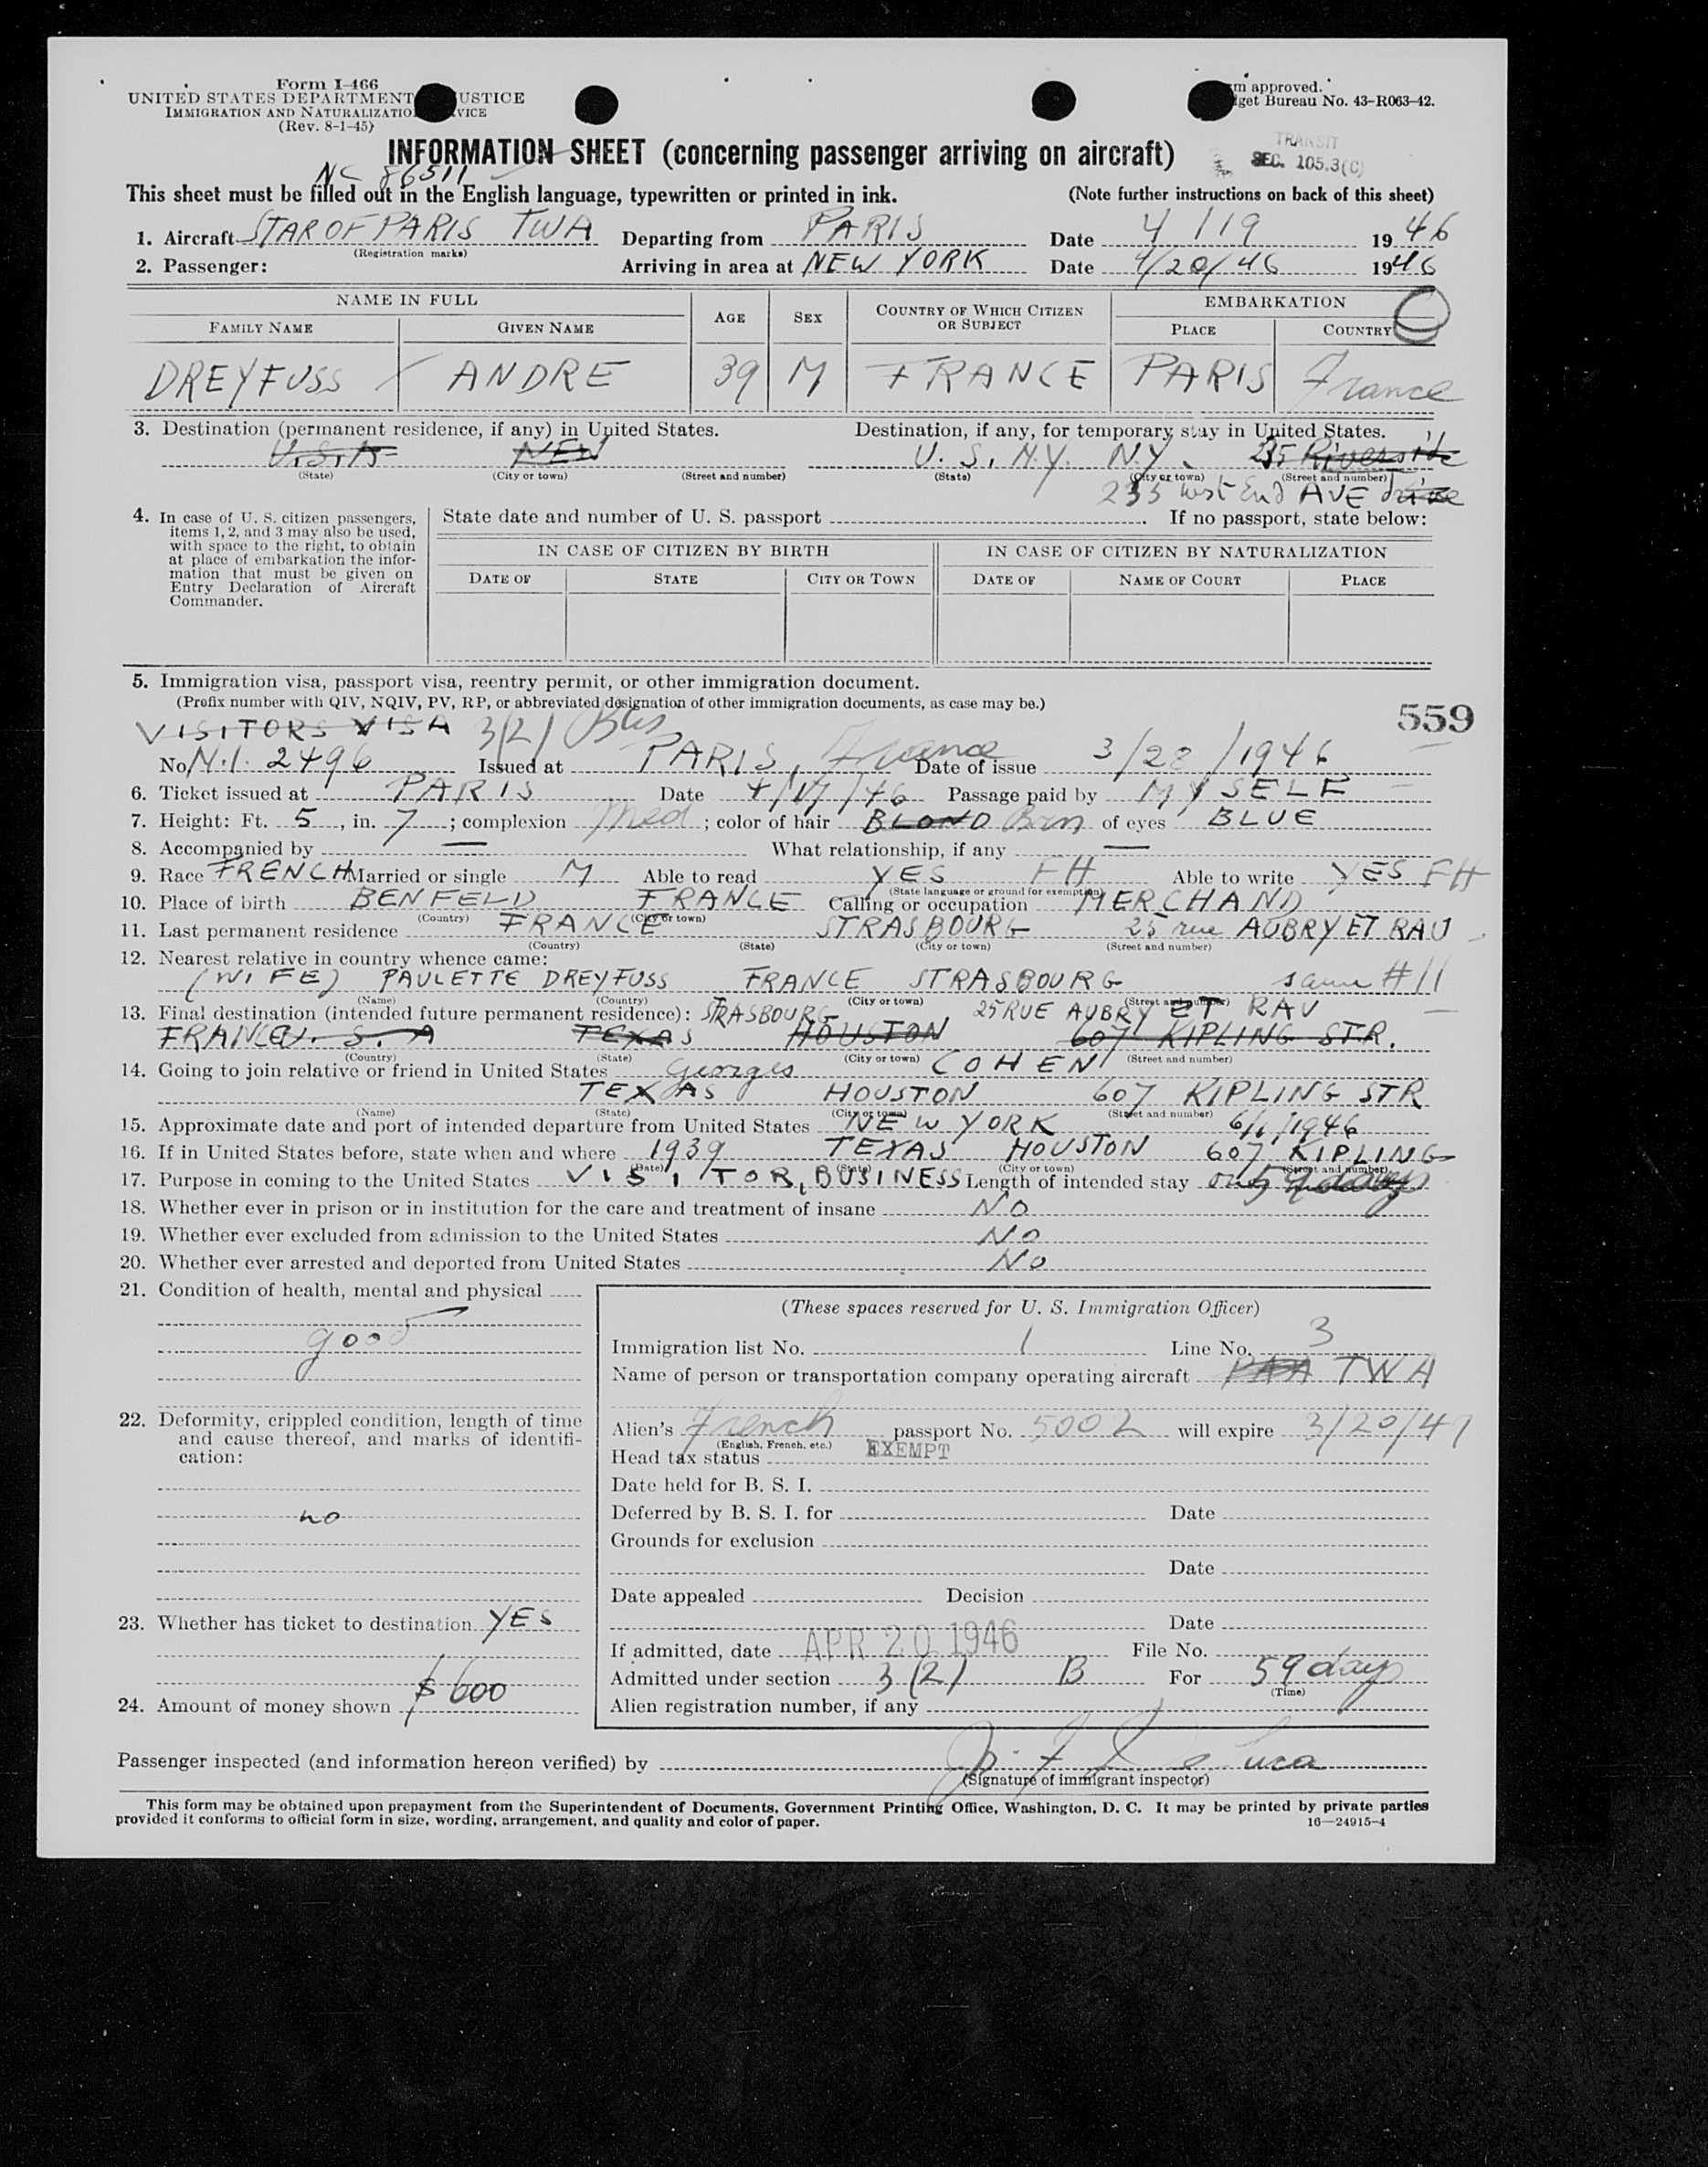 Form I-466
UNITED STATES DEPARTMENT USTICE
IMMIGRATION AND NATURALIZATIO VICE
(Rev. 8-1-45)
m approved.
get Bureau No. 43-R063-42.
INFORMATION SHEET (concerning passenger arriving on aircraft)
TRANSIT
SEC. 105.3(C)
NC 86511
This sheet must be filled out in the English language, typewritten or printed in ink. (Note further instructions on back of this sheet)
1. Aircraft STAR OF PARIS TWA Departing from PARIS Date 4/19 1946
(Registration marks)
2. Passenger: Arriving in area at NEW YORK Date 4/20/46 1946
NAME IN FULL AGE SEX COUNTRY OF WHICH CITIZEN OR SUBJECT EMBARKATION
FAMILY NAME GIVEN NAME PLACE COUNTRY
DREYFUSS ANDRE 39 M FRANCE PARIS France
3. Destination (permanent residence, if any) in United States. Destination, if any, for temporary stay in United States.
U.S.A NEW U. S. N.Y. N.Y. 235 Riverside
(State) (City or town) (Street and number) (State) (City or town) (Street and number)
233 West End AVE Drive
4. In case of U. S. citizen passengers, items 1, 2, and 3 may also be used, with space to the right, to obtain at place of embarkation the information that must be given on Entry Declaration of Aircraft Commander.
State date and number of U. S. passport If no passport, state below:
IN CASE OF CITIZEN BY BIRTH IN CASE OF CITIZEN BY NATURALIZATION
DATE OF STATE CITY OR TOWN DATE OF NAME OF COURT PLACE
5. Immigration visa, passport visa, reentry permit, or other immigration document.
(Prefix number with QIV, NQIV, PV, RP, or abbreviated designation of other immigration documents, as case may be.)
559
VISITORS VISA 3(2) Bus
No. N.I. 2496 Issued at PARIS, France Date of issue 3/28/1946
6. Ticket issued at PARIS Date 4/17/46 Passage paid by MYSELF
7. Height: Ft. 5, in. 7; complexion Med; color of hair BLOND Brn of eyes BLUE
8. Accompanied by — What relationship, if any —
9. Race FRENCH Married or single M Able to read YES FH Able to write YES FH
(State language or ground for exemption)
10. Place of birth BENFELD FRANCE Calling or occupation MERCHAND
(Country) (City or town)
11. Last permanent residence FRANCE STRASBOURG 25 rue AUBRY ET RAU
(Country) (State) (City or town) (Street and number)
12. Nearest relative in country whence came:
(WIFE) PAULETTE DREYFUSS FRANCE STRASBOURG same #11
(Name) (Country) (City or town) (Street and number)
13. Final destination (intended future permanent residence): STRASBOURG 25 RUE AUBRY ET RAU
FRANCE U. S. A TEXAS HOUSTON 607 KIPLING STR.
(Country) (State) (City or town) (Street and number)
14. Going to join relative or friend in United States Georges COHEN
TEXAS HOUSTON 607 KIPLING STR
(Name) (State) (City or town) (Street and number)
15. Approximate date and port of intended departure from United States NEW YORK 6/1/1946
16. If in United States before, state when and where 1939 TEXAS HOUSTON 607 KIPLING
(Date) (State) (City or town) (Street and number)
17. Purpose in coming to the United States VISITOR, BUSINESS Length of intended stay 59 days
18. Whether ever in prison or in institution for the care and treatment of insane NO
19. Whether ever excluded from admission to the United States NO
20. Whether ever arrested and deported from United States NO
21. Condition of health, mental and physical
good
22. Deformity, crippled condition, length of time and cause thereof, and marks of identification:
no
23. Whether has ticket to destination YES
24. Amount of money shown $600
(These spaces reserved for U. S. Immigration Officer)
Immigration list No. 1 Line No. 3
Name of person or transportation company operating aircraft PAA TWA
Alien's French passport No. 5002 will expire 3/20/47
(English, French, etc.)
Head tax status EXEMPT
Date held for B. S. I.
Deferred by B. S. I. for Date
Grounds for exclusion
Date
Date appealed Decision
Date
If admitted, date APR 20 1946 File No.
Admitted under section 3(2) B For 59 days
(Time)
Alien registration number, if any
Passenger inspected (and information hereon verified) by
(Signature of immigrant inspector)
This form may be obtained upon prepayment from the Superintendent of Documents, Government Printing Office, Washington, D. C. It may be printed by private parties
provided it conforms to official form in size, wording, arrangement, and quality and color of paper. 16—24915-4